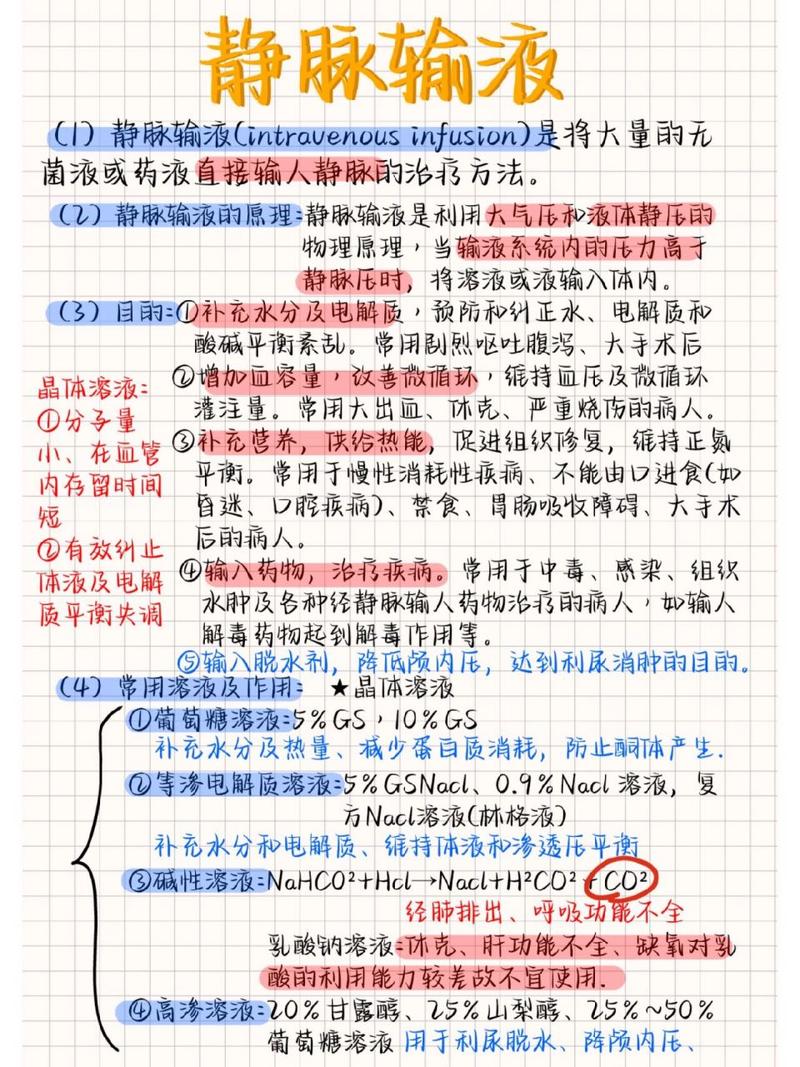 静脉输液
(1) 静脉输液(intravenous infusion)是将大量的无
菌液或药液直接输人静脉的治疗方法。
(2) 静脉输液的原理:静脉输液是利用大气压和液体静压的
物理原理,当输液系统内的压力高于
静脉压时,将溶液或液输入体内。
(3) 目的:①补充水分及电解质,预防和纠正水、电解质和
酸碱平衡紊乱。常用剧烈呕吐腹泻、大手术后
②增加血容量,改善微循环,维持血压及微循环
灌注量。常用大出血、休克、严重烧伤的病人。
③补充营养,供给热能,促进组织修复,维持正氮
平衡。常用于慢性消耗性疾病、不能由口进食(如
昏迷、口腔疾病)、禁食、胃肠吸收障碍、大手术
后的病人。
④输入药物,治疗疾病。常用于中毒、感染、组织
水肿及各种经静脉输人药物治疗的病人,如输人
解毒药物起到解毒作用等。
⑤输入脱水剂,降低颅内压,达到利尿消肿的目的。
晶体溶液:
①分子量
小、在血管
内存留时间
短
②有效纠止
体液及电解
质平衡失调
(4) 常用溶液及作用: ★晶体溶液
①葡萄糖溶液:5%GS,10%GS
补充水分及热量、减少蛋白质消耗,防止酮体产生.
②等渗电解质溶液:5%GSNacl、0.9%Nacl溶液,复
方Nacl溶液(林格液)
补充水分和电解质、维持体液和渗透压平衡
③碱性溶液:NaHCO²+Hcl→Nacl+H²CO²+CO²
经肺排出、呼吸功能不全
乳酸钠溶液:休克、肝功能不全、缺氧对乳
酸的利用能力较差故不宜使用.
④高渗溶液:20%甘露醇、25%山梨醇、25%~50%
葡萄糖溶液 用于利尿脱水、降颅内压、